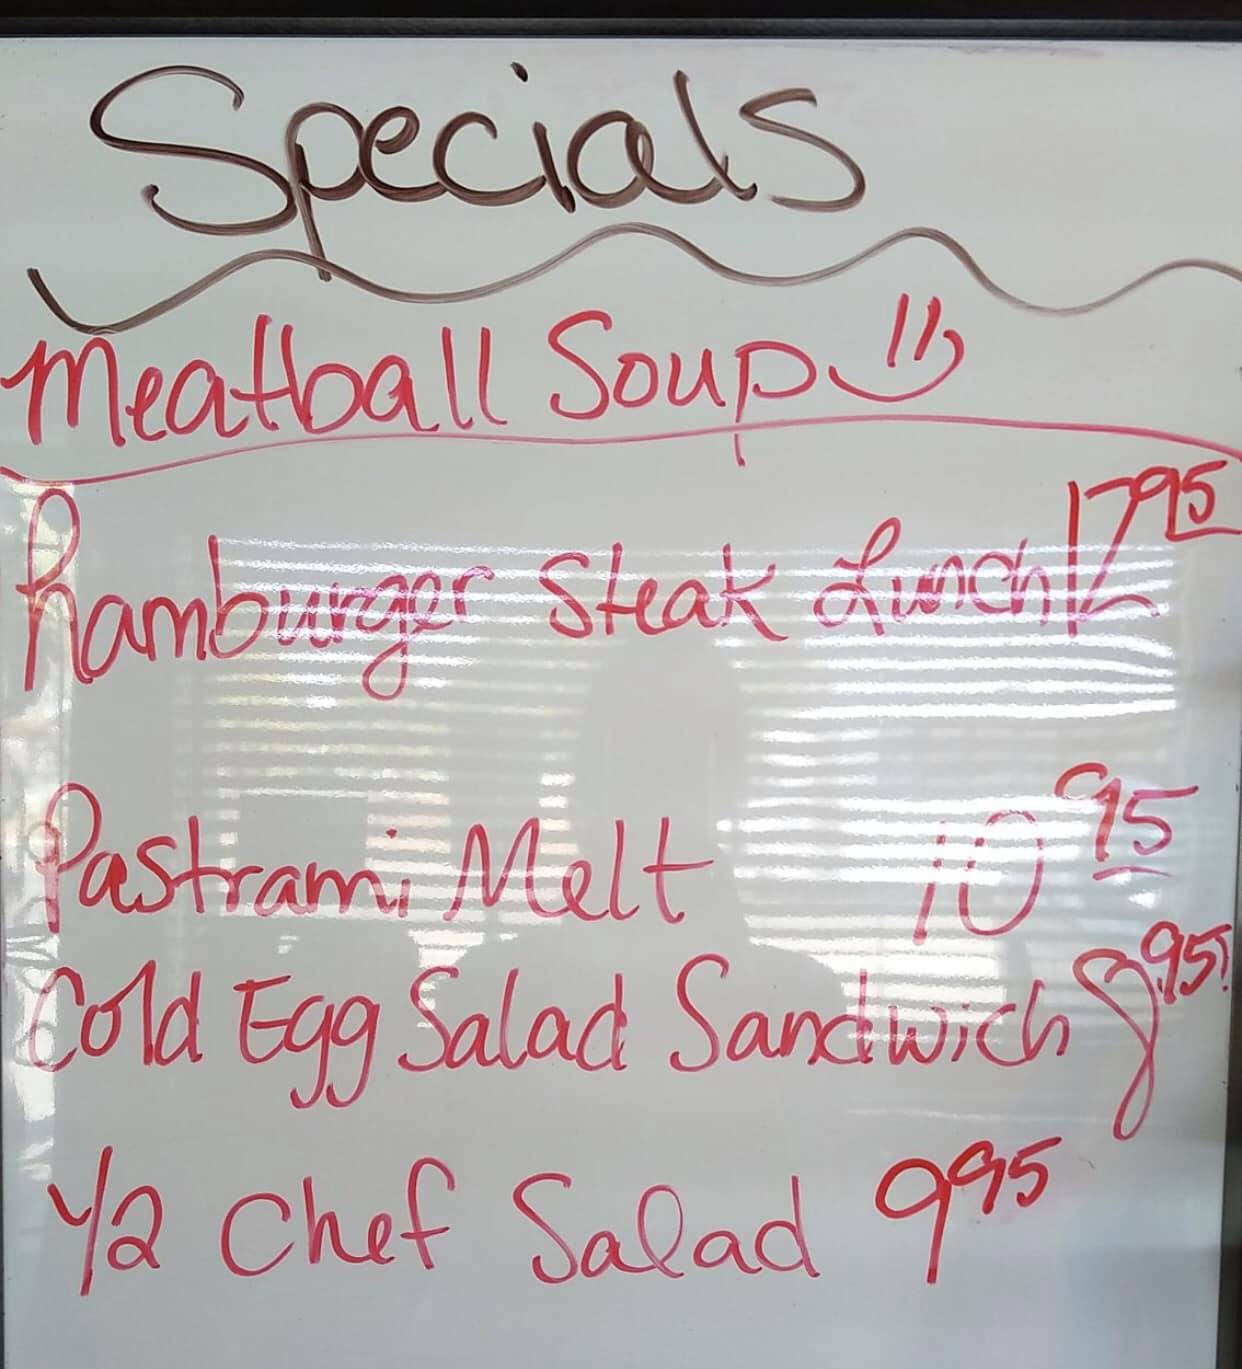 Specials
Meatball Soup
Hamburger Steak Lunch 12 95
Pastrami Melt 10 95
Cold Egg Salad Sandwich 8 95
1/2 Chef Salad 9 95